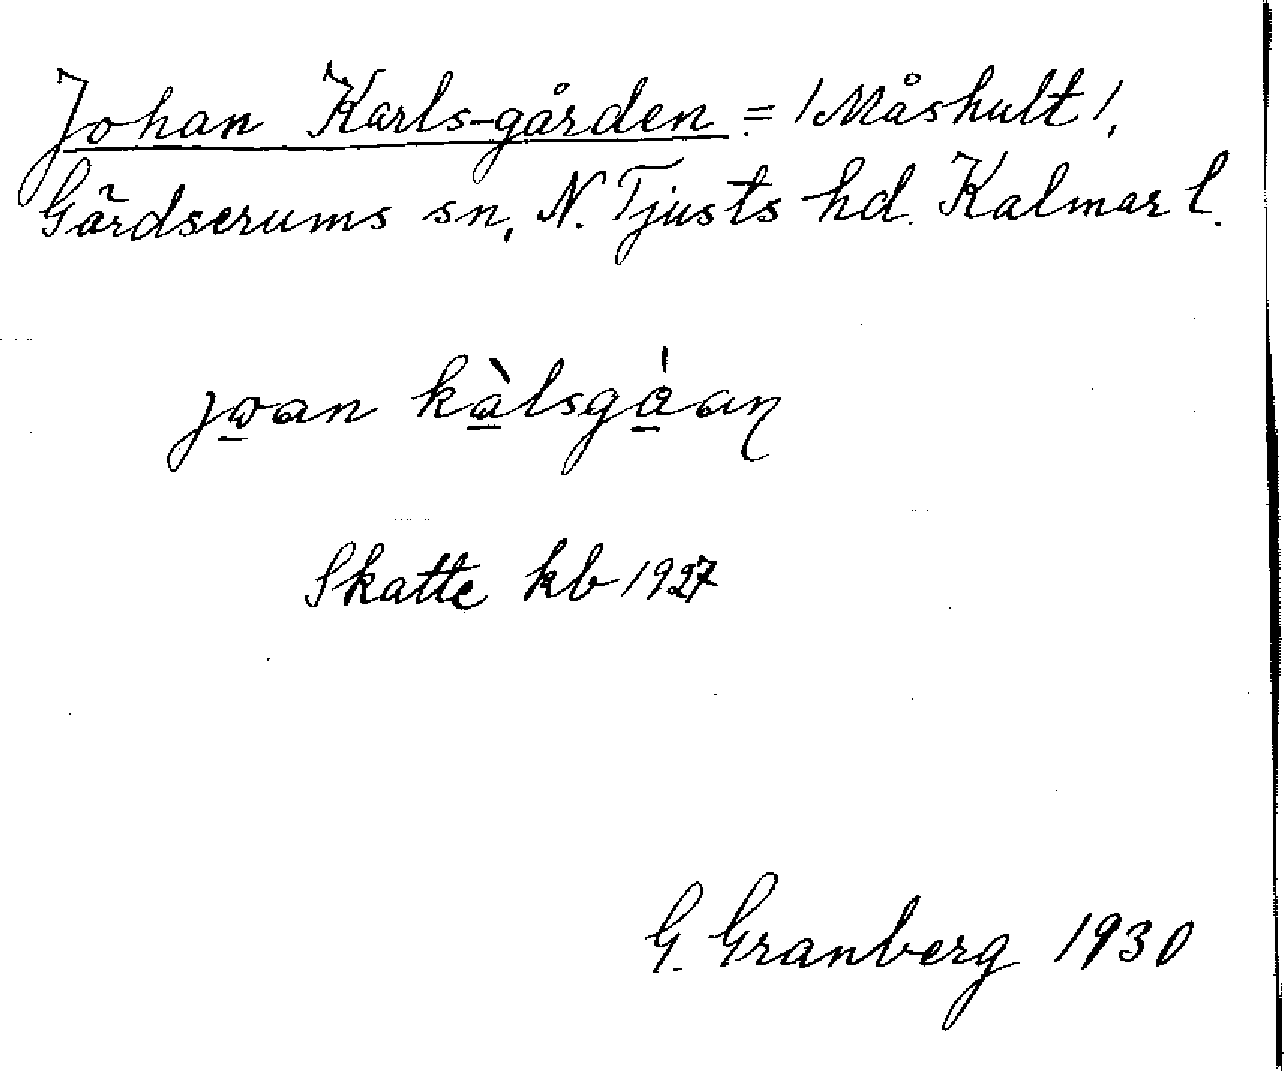 Johan Karls-gården = /Måshult/,
Gärdserums sn, N. Tjusts hd. Kalmar l.
joan kàlsgåaɳ
Skatte kb 1927
G. Granberg 1930